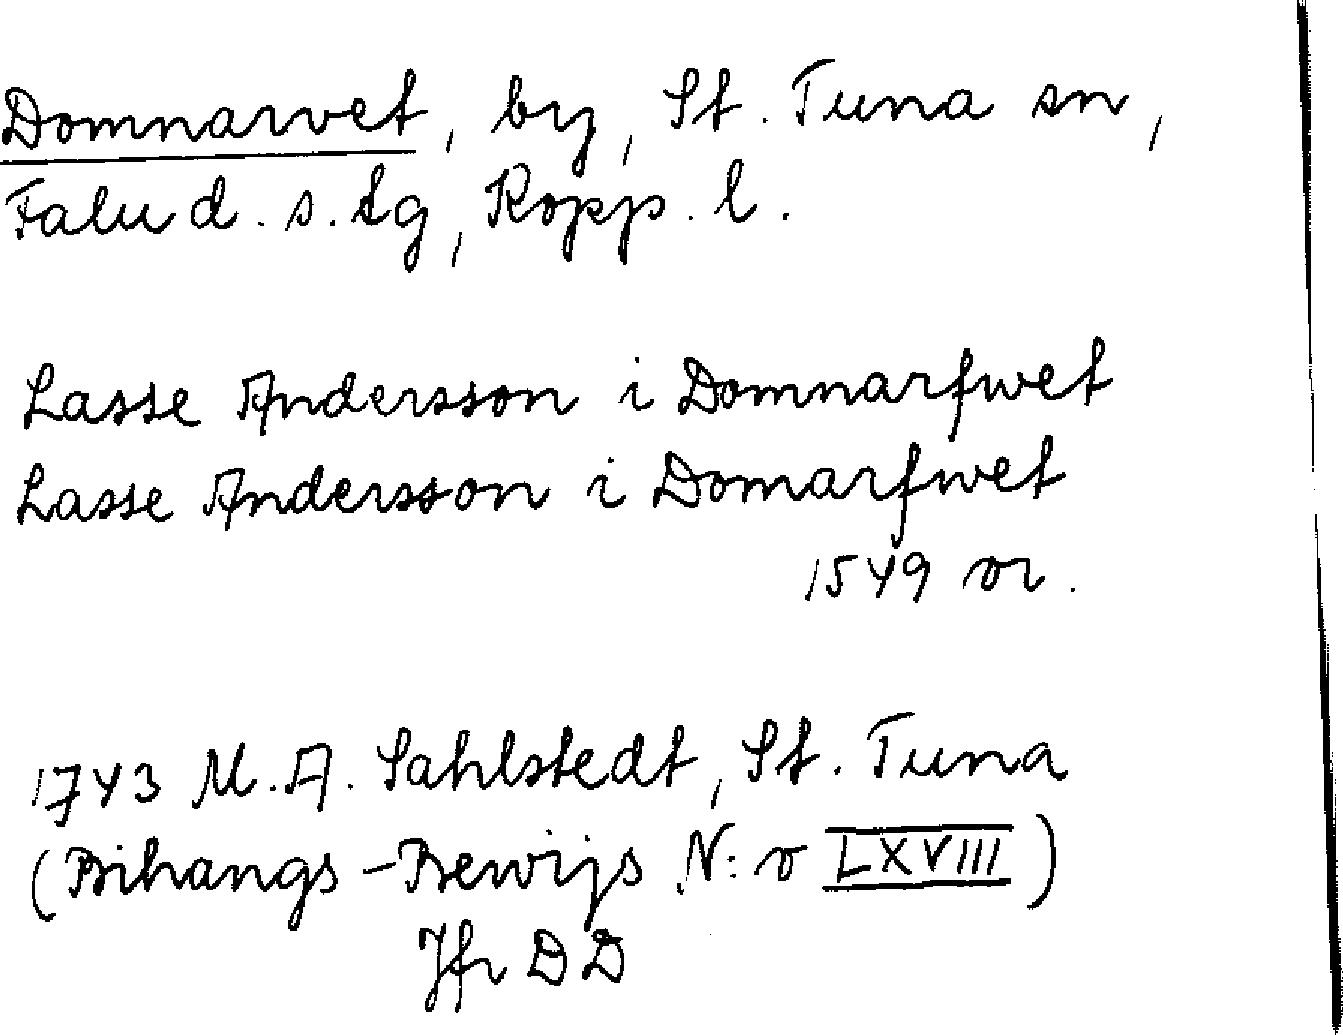 Domnarvet, by, St. Tuna sn,
Falu d. s. tg, Kopp. l.
Lasse Andersson i Domnarfwet
Lasse Andersson i Domarfwet
1549 or.
1743 M. A. Sahlstedt, St. Tuna
(Bihangs-Bewijs N:o LXVIII)
Jfr DD